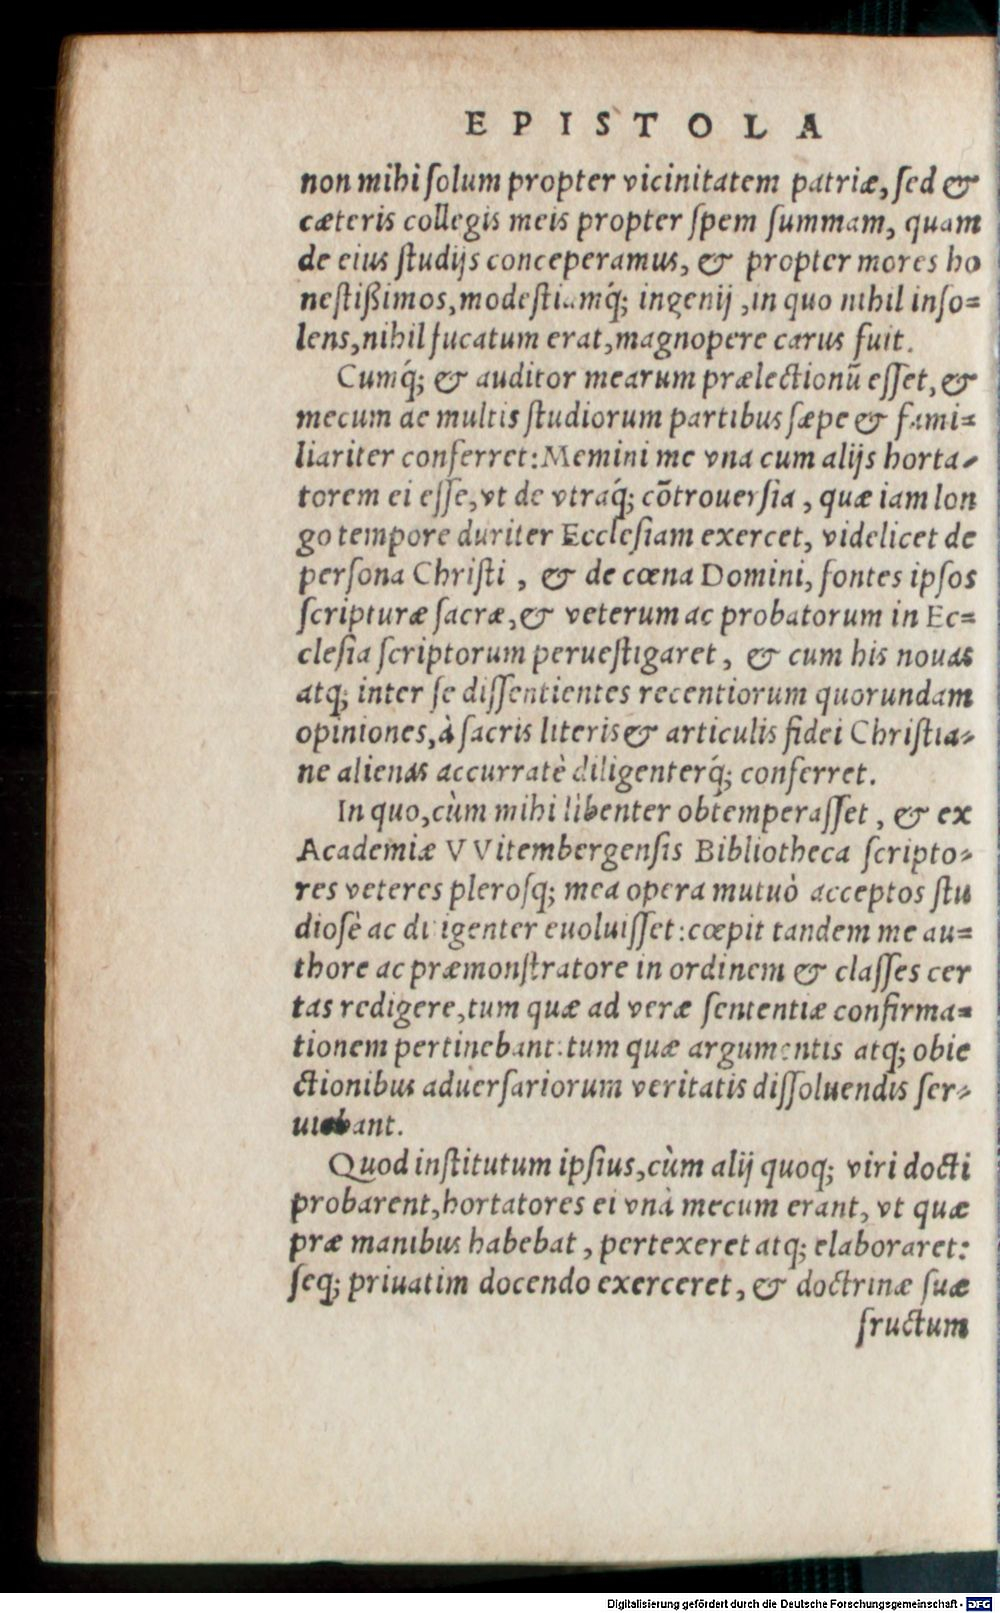 EPISTOLA
non mihi ſolum propter vicinitatem patriæ, ſed &
cæteris collegis meis propter ſpem ſummam, quam
de eius ſtudijs conceperamus, & propter mores ho
neſtißimos, modeſtiamq́; ingenij, in quo nihil inſo=
lens, nihil fucatum erat, magnopere carus fuit.
Cumq́; & auditor mearum prælectionū eſſet, &
mecum de multis ſtudiorum partibus ſæpe & fami=
liariter conferret: Memini me vna cum alijs horta-
torem ei eſſe, vt de vtraq́; cōtrouerſia, quæ iam lon
go tempore duriter Eccleſiam exercet, videlicet de
perſona Chriſti, & de cœna Domini, fontes ipſos
ſcripturæ ſacræ, & veterum ac probatorum in Ec=
cleſia ſcriptorum perueſtigaret, & cum his nouas
atq; inter ſe diſſentientes recentiorum quorundam
opiniones, à ſacris literis & articulis fidei Chriſtia-
ne alienas accurratè diligenterq́; conferret.
In quo, cùm mihi libenter obtemperaſſet, & ex
Academiæ VVitembergenſis Bibliotheca ſcripto-
res veteres pleroſq; mea opera mutuò acceptos ſtu
dioſè ac diligenter euoluiſſet: cœpit tandem me au=
thore ac præmonſtratore in ordinem & claſſes cer
tas redigere, tum quæ ad veræ ſententiæ confirma=
tionem pertinebant: tum quæ argumentis atq; obie
ctionibus aduerſariorum veritatis diſſoluendis ſer-
uiebant.
Quod inſtitutum ipſius, cùm alij quoq; viri docti
probarent, hortatores ei vnà mecum erant, vt quæ
præ manibus habebat, pertexeret atq; elaboraret:
ſeq; priuatim docendo exerceret, & doctrinæ ſuæ
fructum
Digitalisierung gefördert durch die Deutsche Forschungsgemeinschaft - DFG